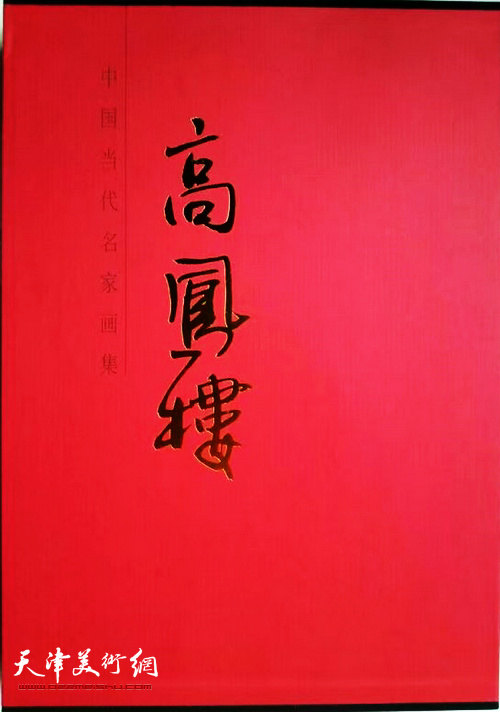 中国当代名家画集
高鳳樓
天津美術網